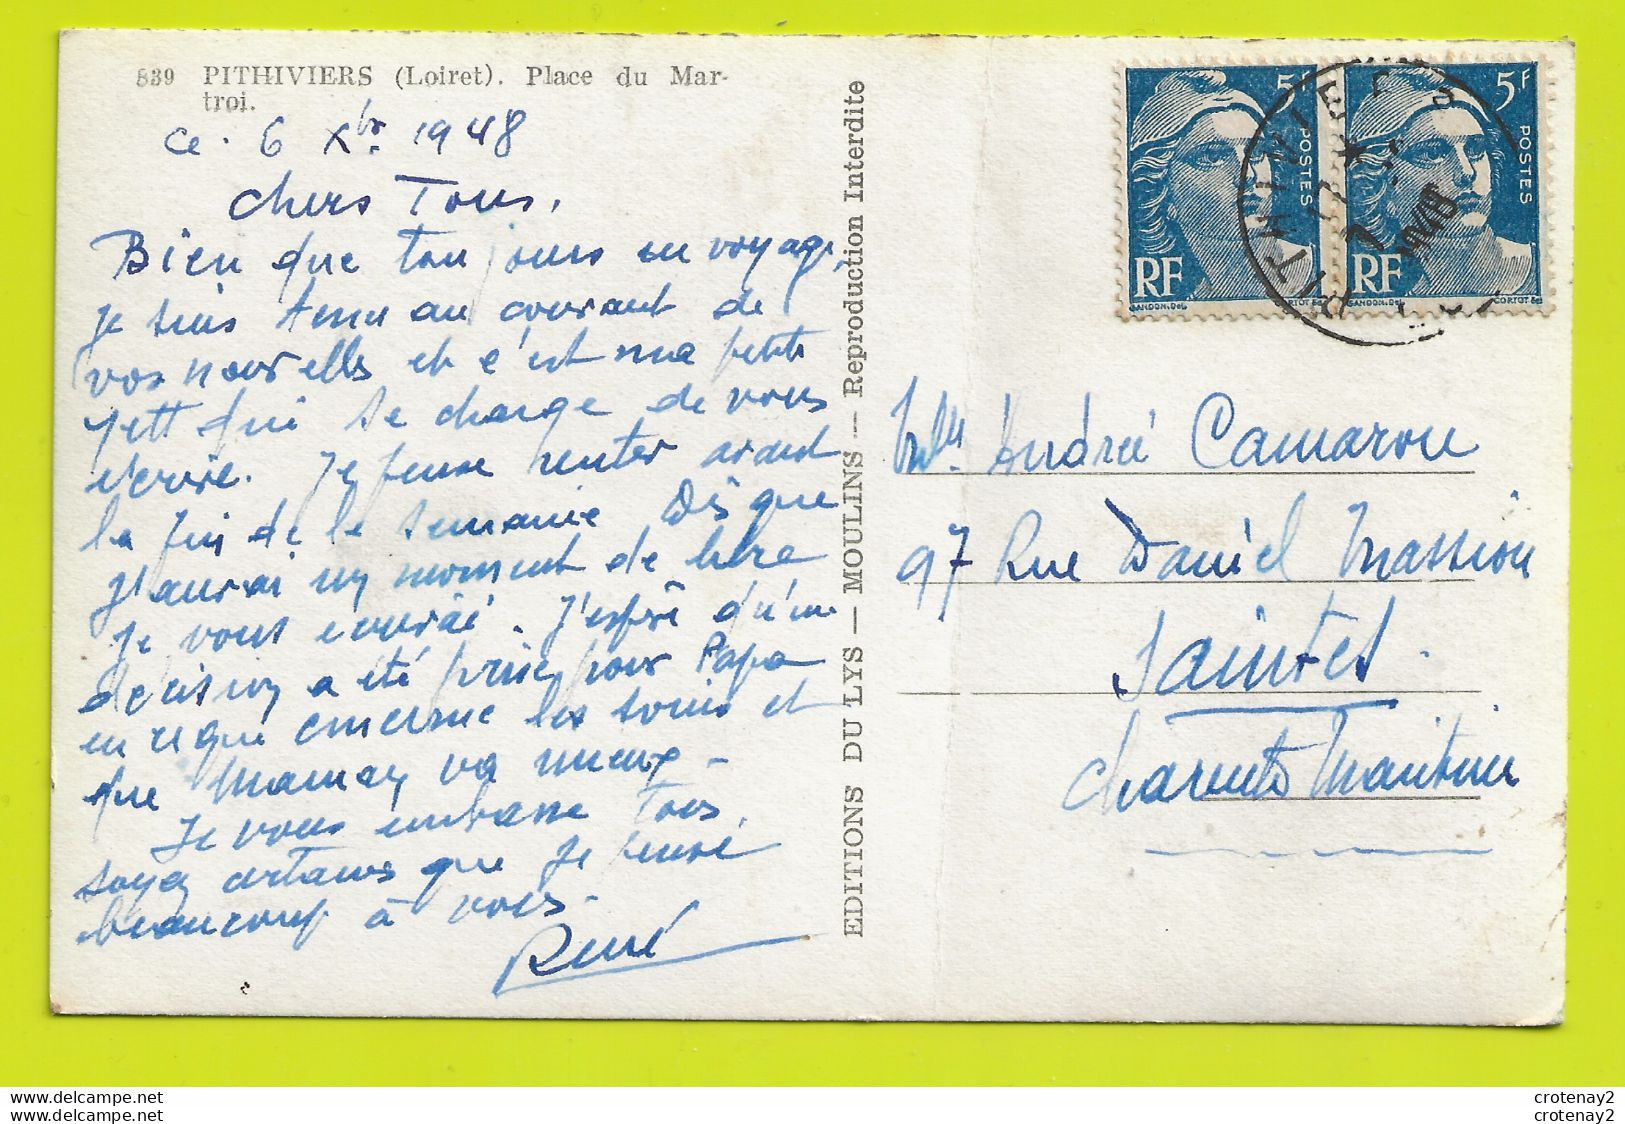 839 PITHIVIERS (Loiret). Place du Mar-
troi.
Ce. 6 Xbr. 1948
Chers Tous,
Bien que toujours en voyage,
je suis tenu au courant de
vos nouvelles et c'est ma petite
qui se charge de vous
écrire. Je pense rentrer avant
la fin de la semaine Dès que
J'aurai un moment de libre
je vous écrirai. J'espère qu'une
décision a été prise pour Papa
en ce qui concerne les soins et
que Maman va mieux.
Je vous embrasse Tous
soyez certains que je pense
beaucoup à vous.
René
EDITIONS DU LYS — MOULINS — Reproduction Interdite
5F
POSTES
RF
GANDON. Del.
CORTOT Sc.
5F
POSTES
RF
GANDON. Del.
CORTOT Sc.
PITHIVIERS
Melle Andrée Camarou
97 Rue Daniel Massiou
Saintes.
Charente Maritime
crotenay2
crotenay2
crotenay2
crotenay2